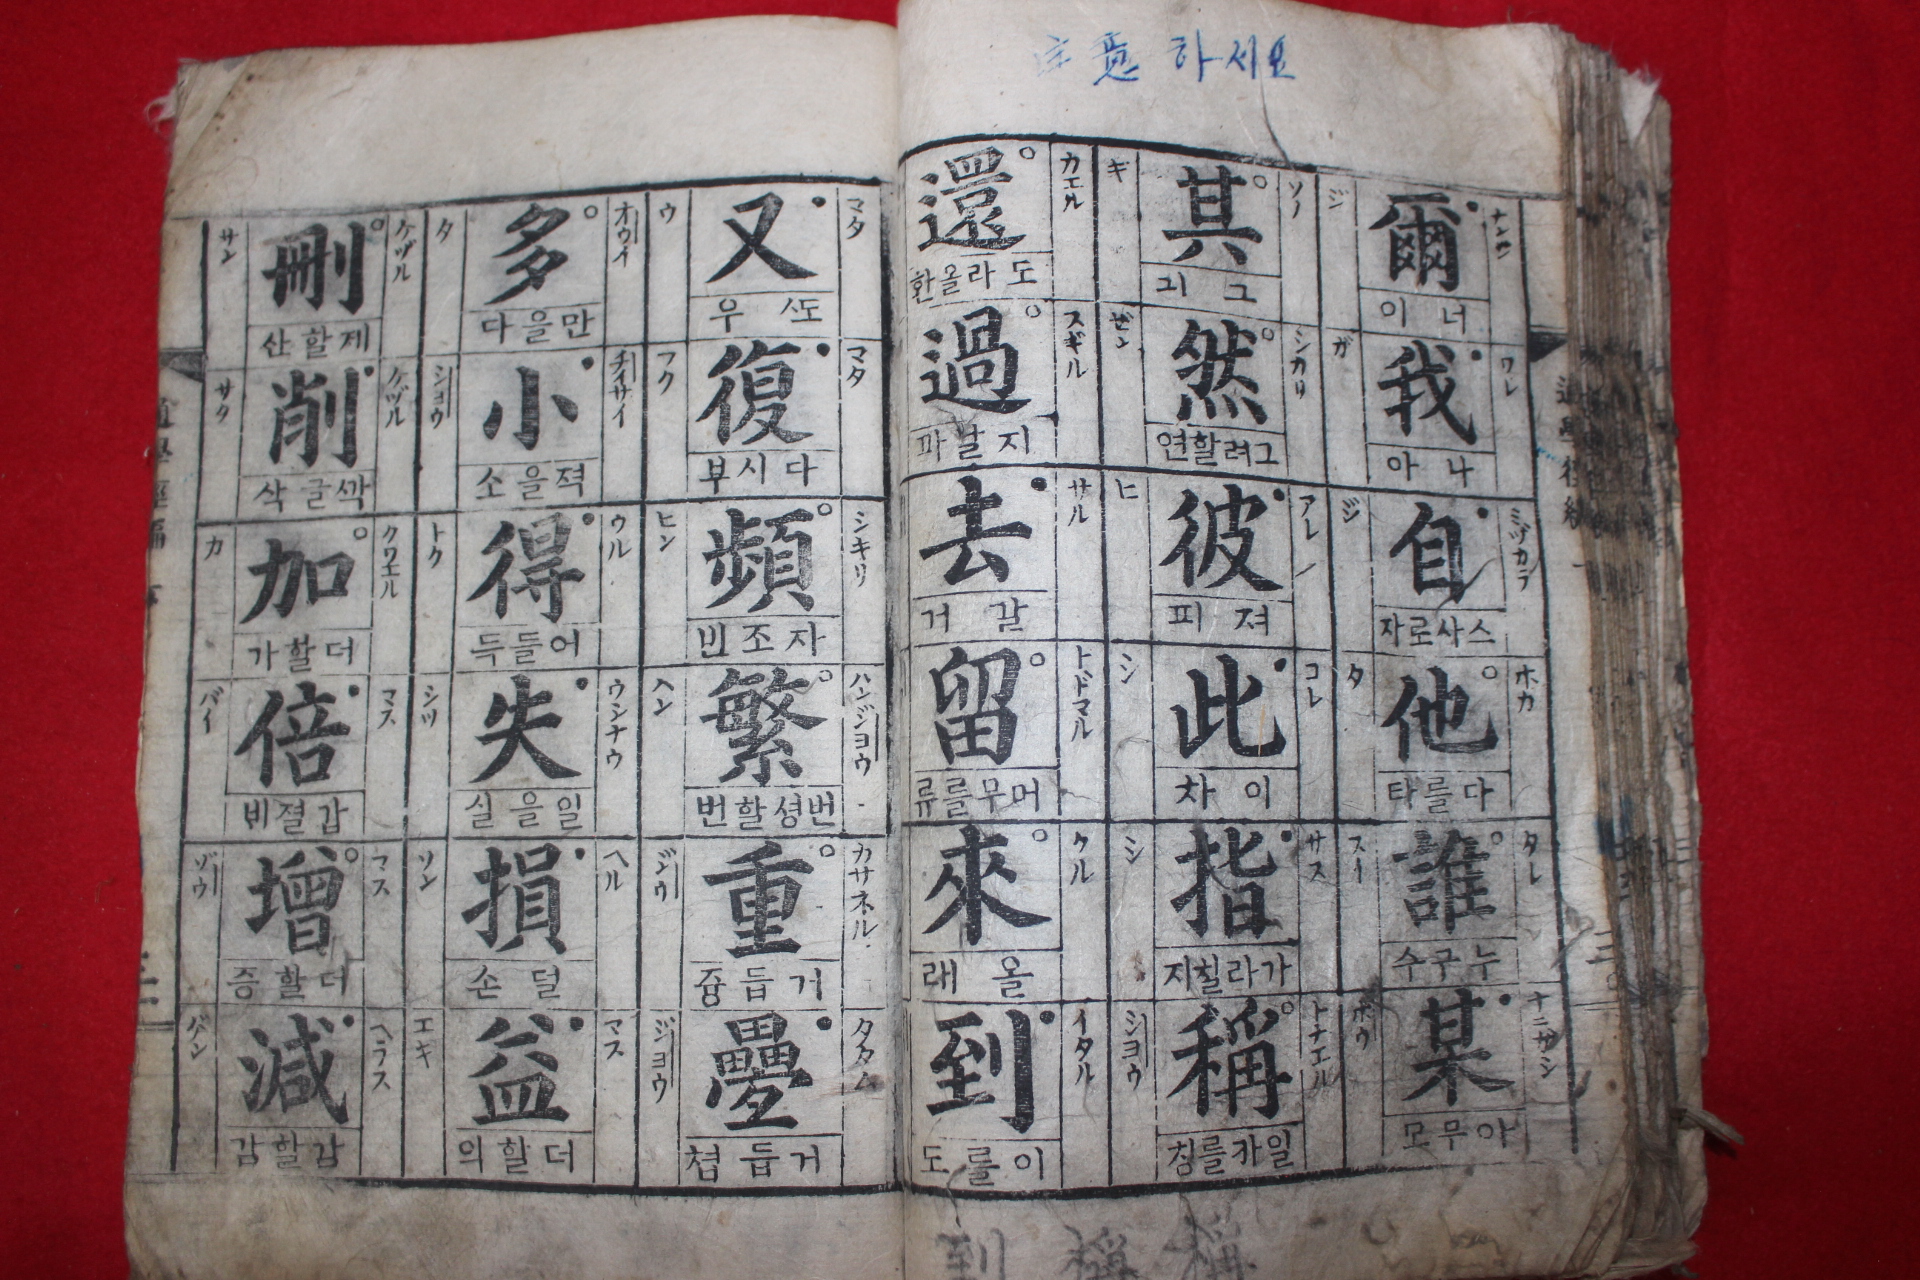 注意 하세요
ナンヂ
爾
너 이
ジ
ワレ
我
나 아
ガ
ミヅカラ
自
스사로자
ジ
ホカ
他
다를타
タ
タレ
誰
누구수
スイ
ナニガシ
某
아무모
ボウ
ソノ
其
그 긔
キ
シカリ
然
그려할연
ゼン
アレ
彼
져 피
ヒ
コレ
此
이 차
シ
サス
指
가라칠지
シ
トナエル
稱
일카를칭
シヨウ
カエル
還
도라올환
スギル
過
지날과
サル
去
갈 거
トドマル
留
머무를류
クル
來
올 래
イタル
到
이를도
マタ
又
ᄯᅩ 우
ウ
マタ
復
다시부
フク
シキリ
頻
자조빈
ヒン
ハンジヨウ
繁
번셩할번
ヘン
カサネル
重
거듭즁
ジウ
タタム
疊
거듭쳡
ジヨウ
オウイ
多
만을다
タ
チイサイ
小
젹을소
シヨウ
ウル
得
어들득
トク
ウシナウ
失
일을실
シツ
ヘル
損
덜 손
ソン
マス
益
더할의
エキ
ケヅル
刪
제할산
サン
ケヅル
削
ᄭᅡᆨ글삭
サク
クワエル
加
더할가
カ
マス
倍
갑졀비
バイ
マス
增
더할증
ゾウ
ヘラス
減
감할감
ゲン
到 稱 稱